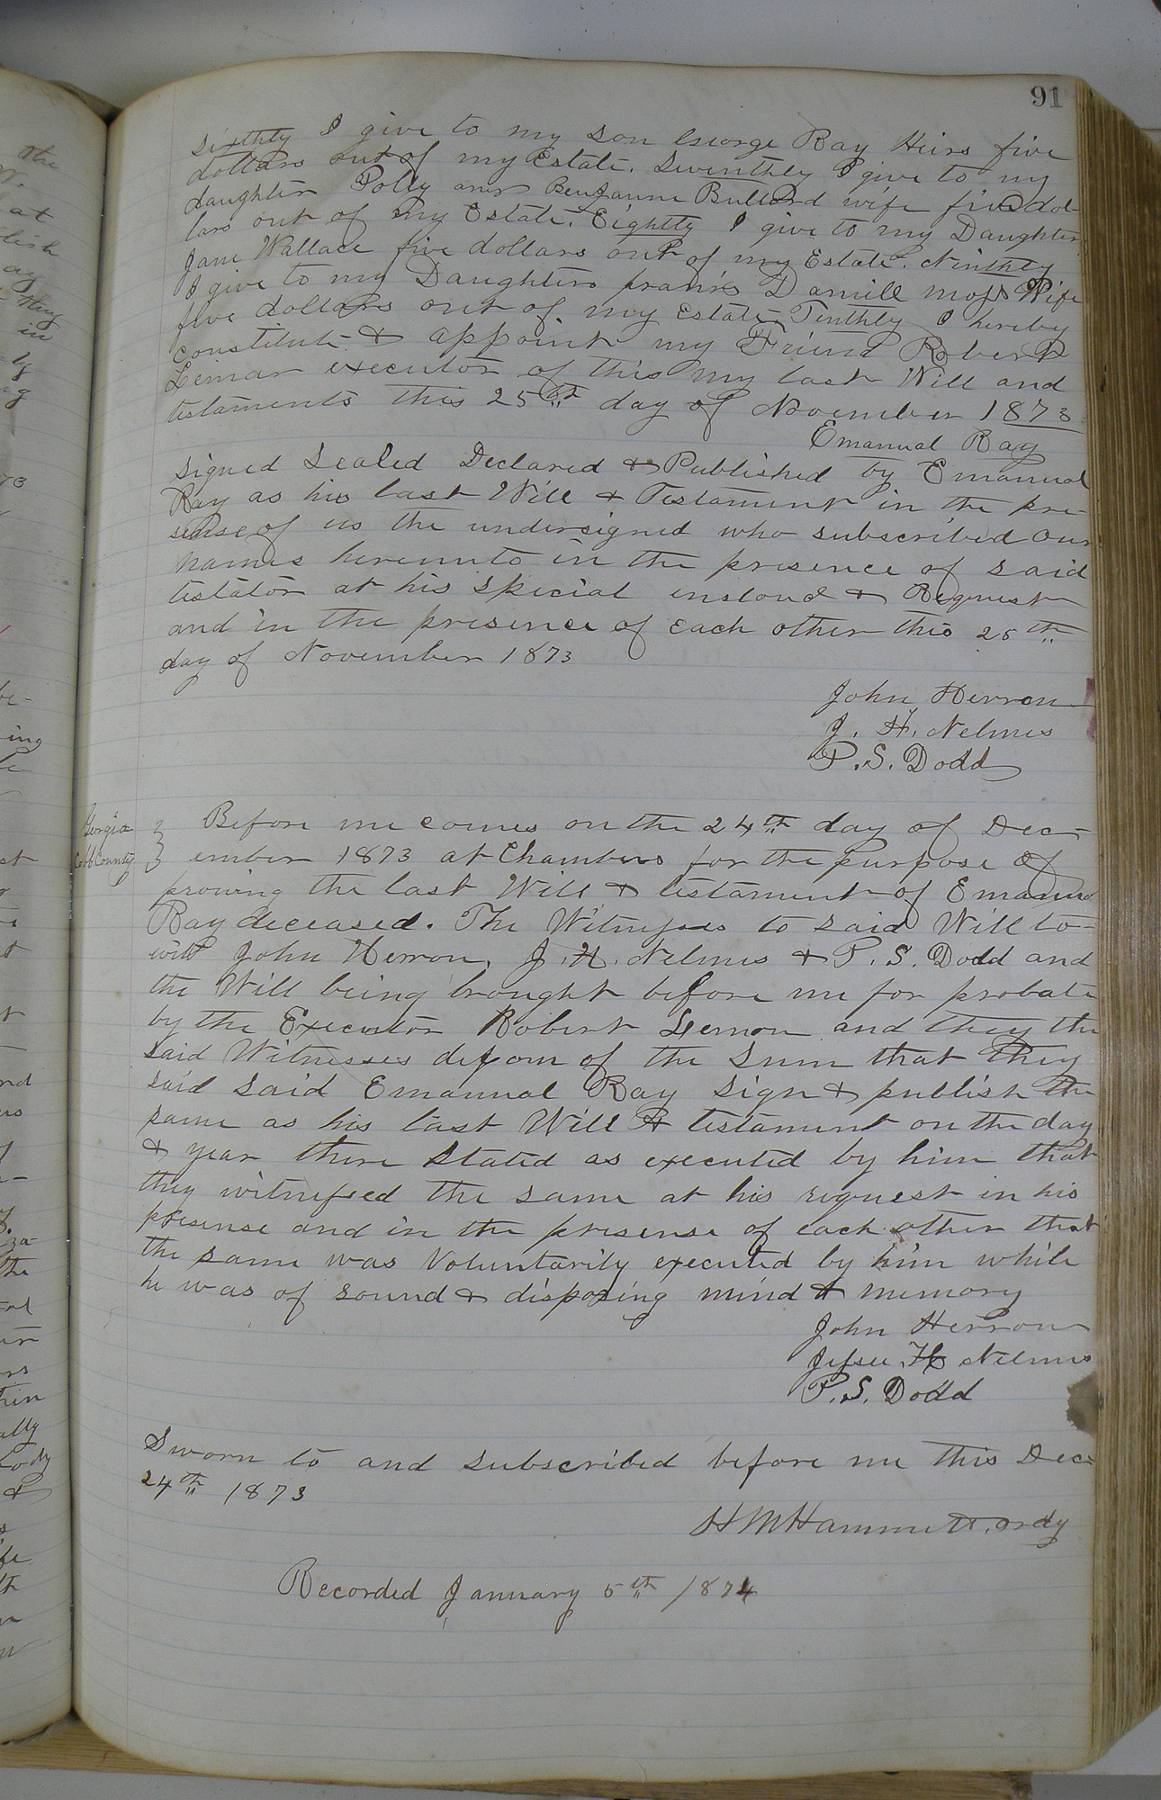 91
Sixthly I give to my son George Ray Heirs five
dollars out of my Estate. Seventhly I give to my
daughter Polly ann Benjamine Bullard wife five dol
lars out of my Estate. Eightly I give to my Daughter
Jane Wallace five dollars out of my Estate. Ninthly
I give to my Daughters Daniell Wife
five dollars out of my Estate Tenthly I hereby
constitute & appoint my Friend Robert
Lemon executor of this my last Will and
testaments this 25th day of November 1873
Emanual Ray
signed Sealed Declared & Published by Emanual
Ray as his last Will & Testament in the pre-
sense of us the undersigned who subscribed our
names hereunto in the presence of said
testator at his special & Request
and in the presence of each other this 25th
day of November 1873
John Herron
J. H. Nelms
P. S. Dodd
Georgia
Cobb County
Before me comes on the 24th day of Dec-
ember 1873 at Chambers for the purpose of
proving the last Will & testament of Emanual
Ray deceased. The Witnesses to said Will to-
wit John Herron, J. H. Nelms & P. S. Dodd and
the Will being brought before me for probate
by the Executor Robert Lemon and they the
said Witnesses of the Sum that they
said said Emanual Ray sign & publish the
same as his last Will & testament on the day
& year there Stated as executed by him that
they witnessed the same at his request in his
presense and in the presense of each other that
the same was Voluntarily executed by him while
he was of sound & disposing mind & memory
John Herron
Jessee H Nelms
P. S. Dodd
Sworn to and subscribed before me this Dec
24th 1873
H M Hammett. ordy
Recorded January 5th 1874